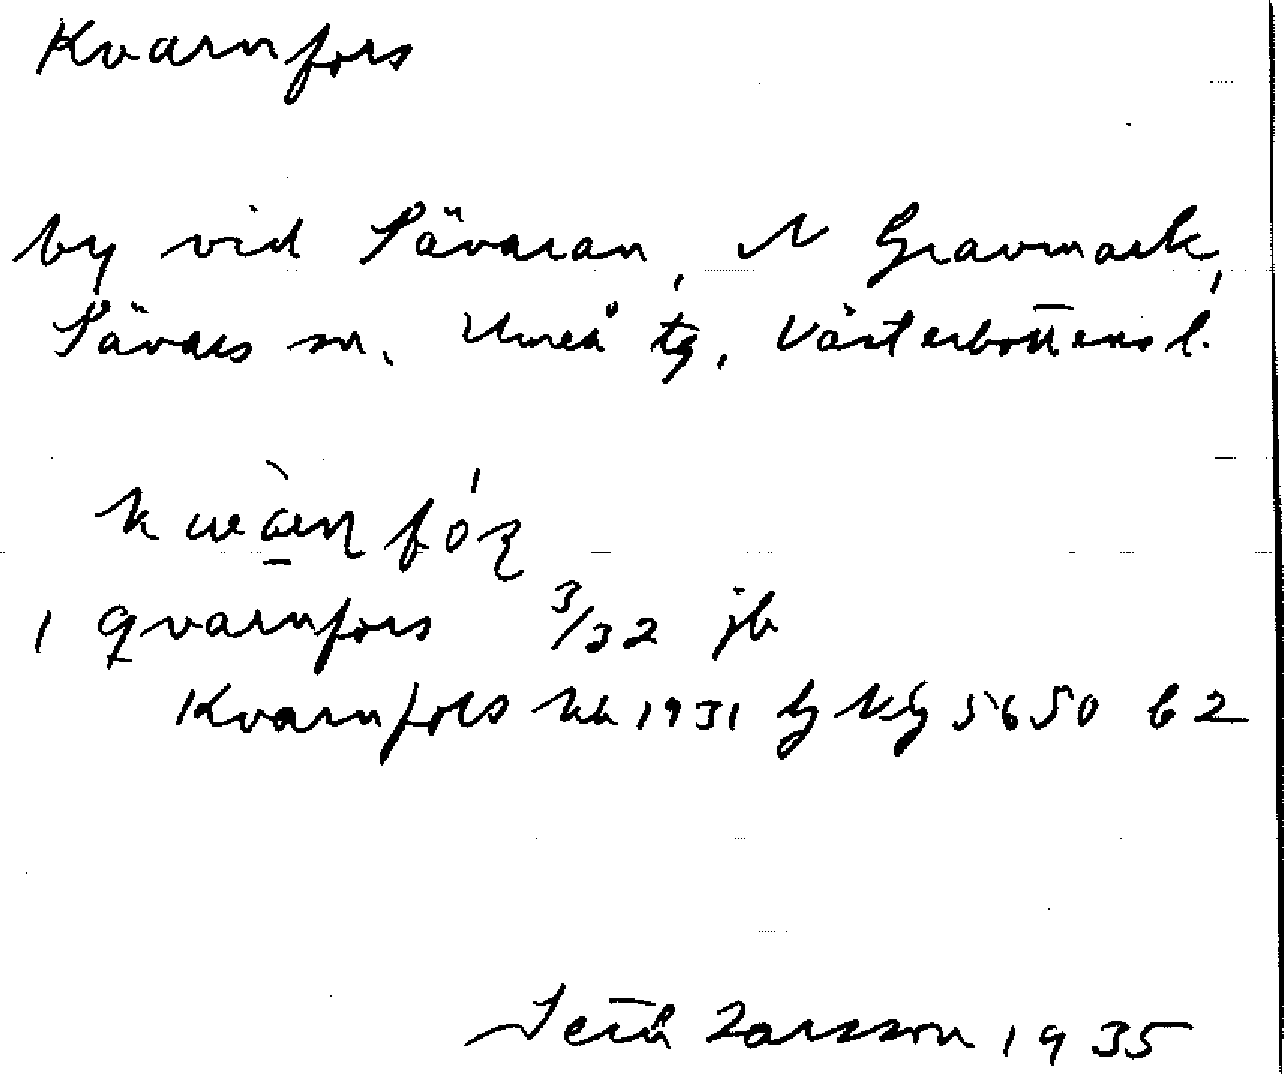 Kvarnfors
by vid Sävarån, N Gravmark,
Sävars sn. Umeå tg, Västerbottens l.
1 Qvarnfors 3/32 jb
Kvarnfors 1931 5650 b 2
Seth Larsson 1935